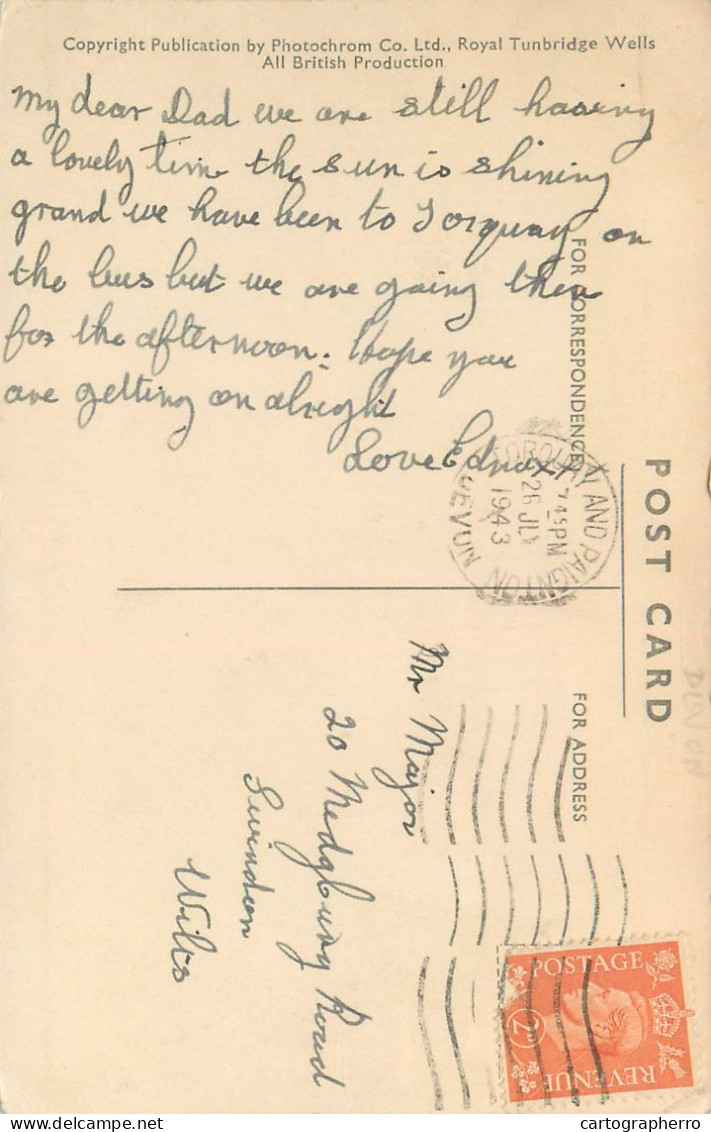 Copyright Publication by Photochrom Co. Ltd., Royal Tunbridge Wells
All British Production
My dear Dad we are still having
a lovely time the sun is shining
grand we have been to Torquay on
the bus but we are going there
for the afternoon. Hope you
are getting on alright
Love Edna xx
FOR CORRESPONDENCE
POST CARD
TORQUAY AND PAIGNTON
DEVON
7.45 PM
26 JLY
1943
FOR ADDRESS
Mr Major
20 Medgbury Road
Swindon
Wilts
DEVON
POSTAGE
2D
REVENUE
cartographerro